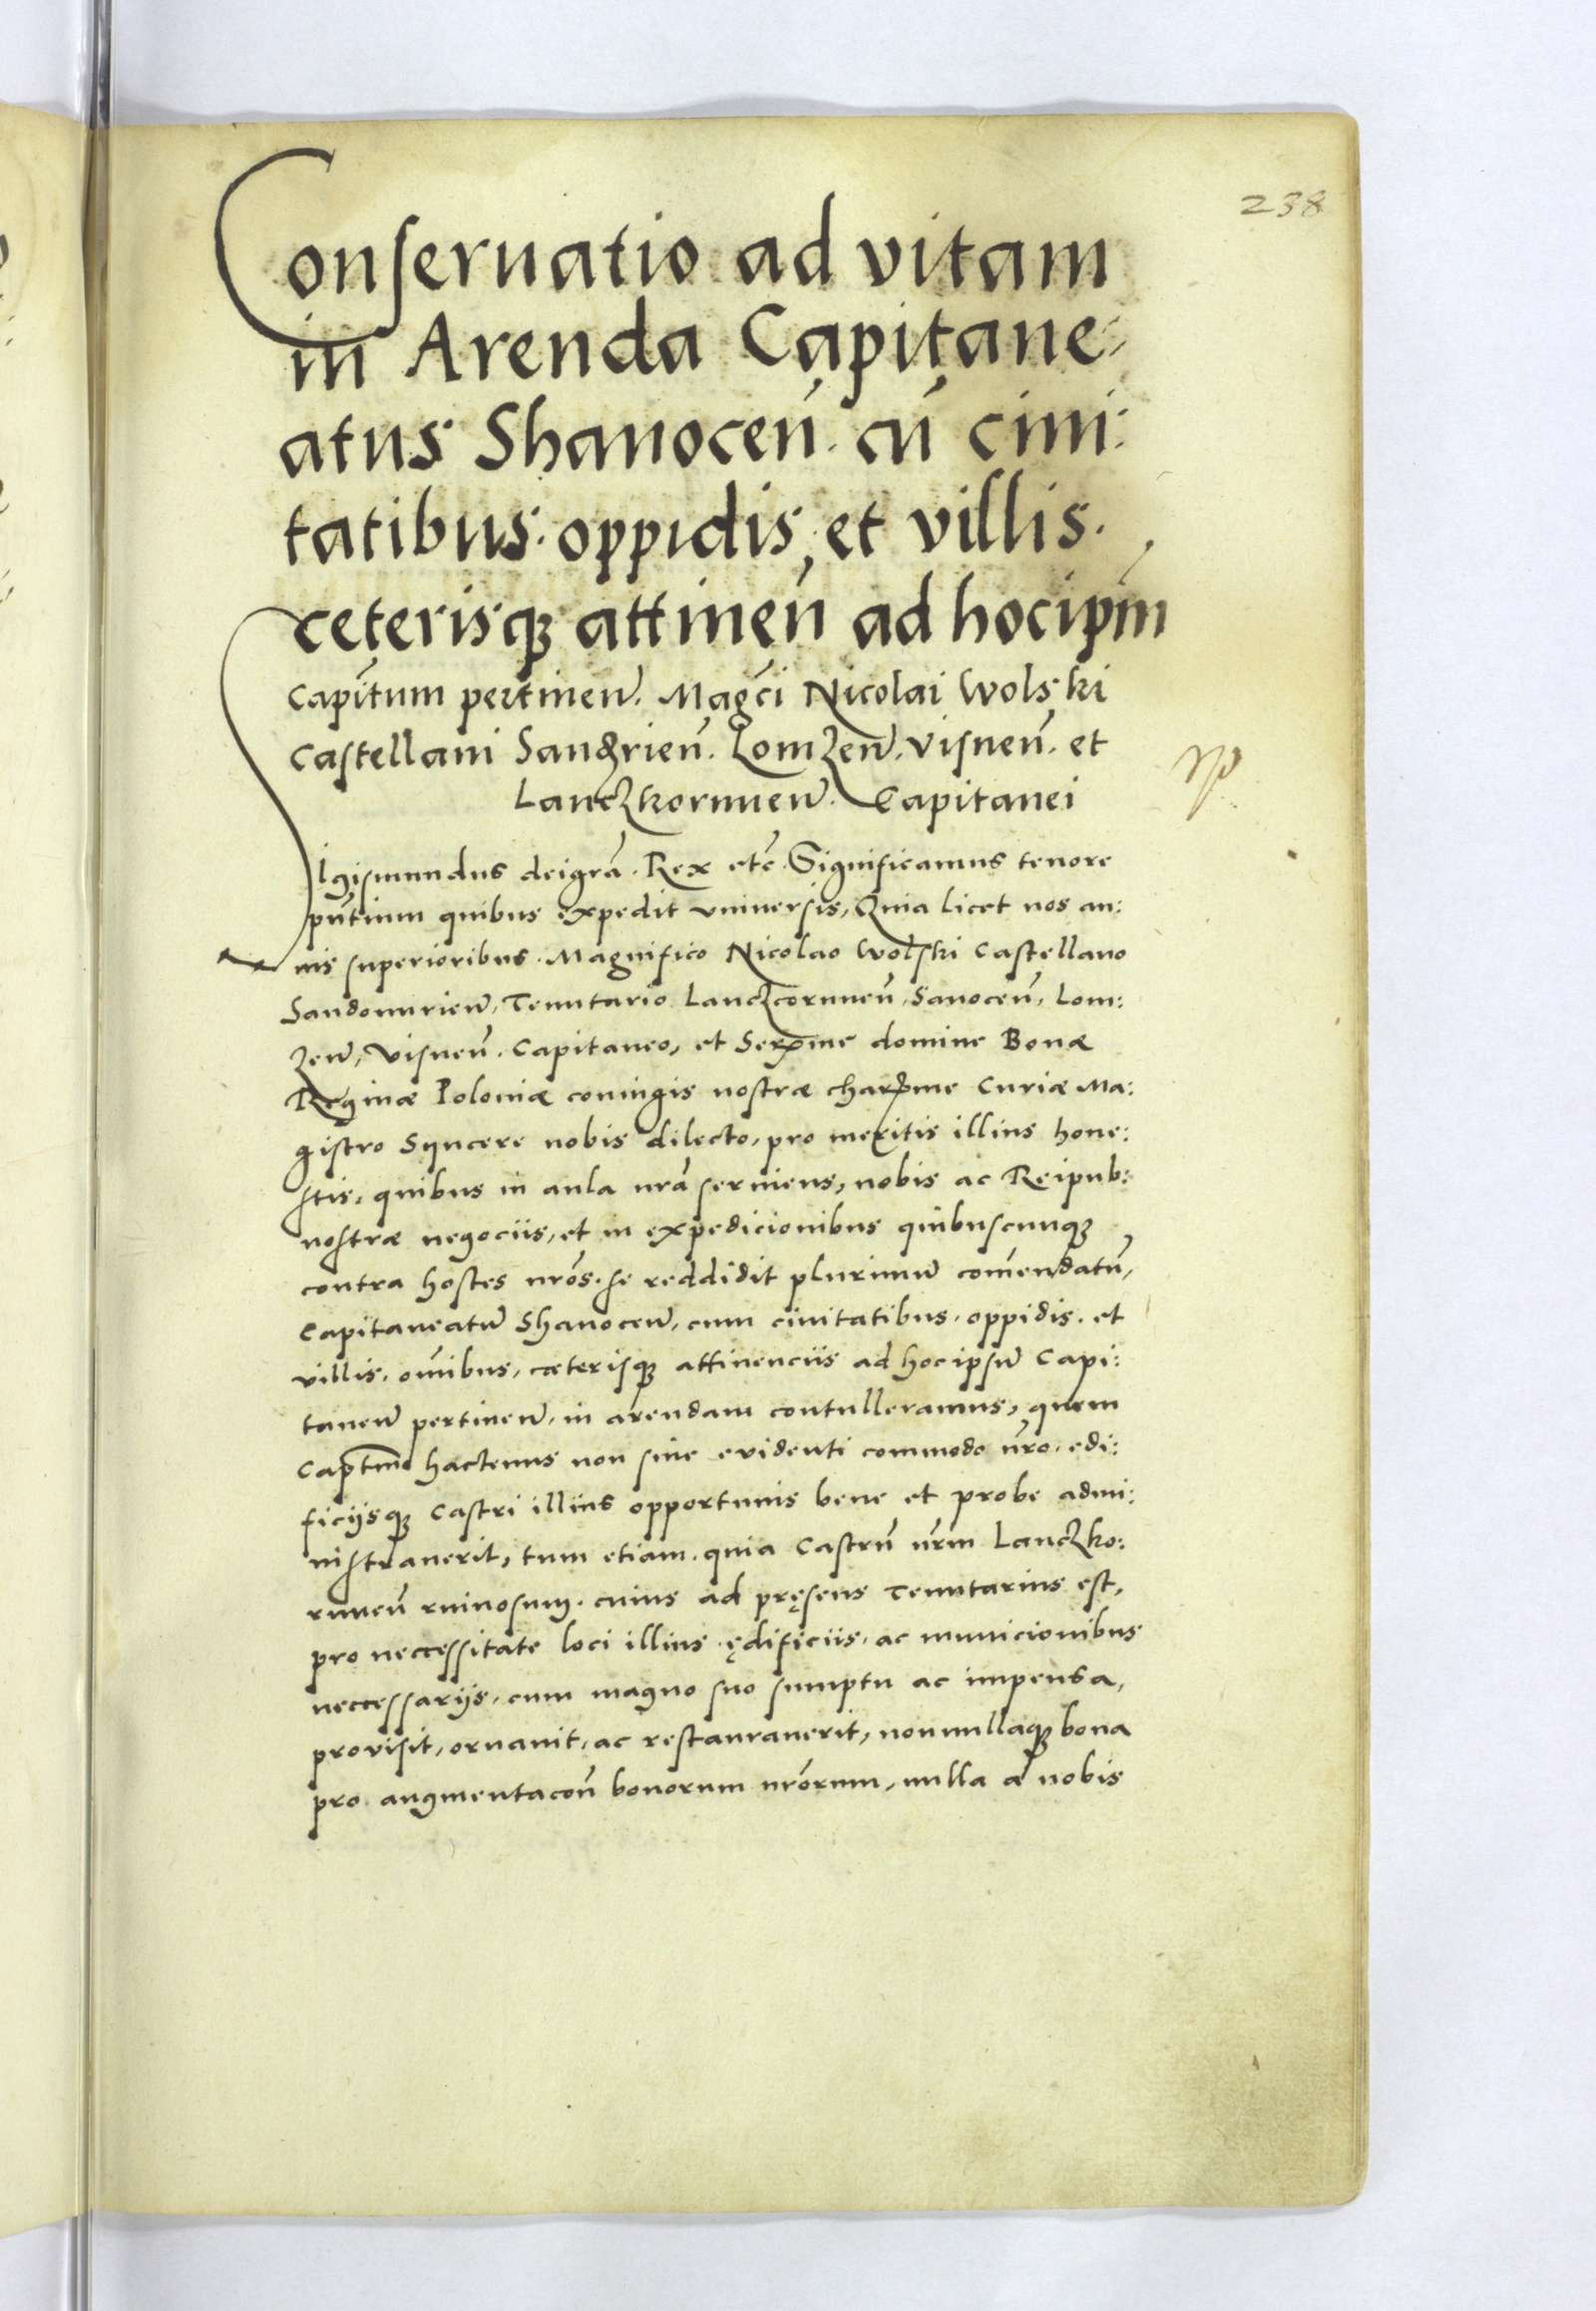 238
Conseruatio ad vitam
in Arenda Capitane-
atus Shanoceñ. cũ ciui:
tatibus. oppidis, et villis.
ceterisq₃ attineñ ad hocip̃m
Capitũm pertineñ. Magc̃i Nicolai Wolski
Castellani Sandrieñ. Lomzeñ. Visneñ. et
Lanczkoruneñ. Capitanei
Sigismundus dei gr̃a. Rex etc̃. Significamus tenore
pñtium quibus expedit vniuersis, Quia licet nos an:
nis superioribus. Magnifico Nicolao Wolski Castellano
Sandomirieñ, Tenutario Lanczcoruneñ, Sanoceñ, Lom:
zeñ, Visneñ. Capitaneo, et Serme domine Bonæ
Reginæ Poloniæ coniugis nostræ charme Curiæ Ma:
gistro Syncere nobis dilecto, pro meritis illius hone:
stis, quibus in aula nr̃a seruiens, nobis ac Reipub:
nostræ negociis, et in expedicionibus quibuscunq₃
contra hostes nr̃os. se reddidit plurimũ com̃endatũ,
Capitaneatũ Shanoceñ, cum ciuitatibus. oppidis. et
villis. om̃ibus, cæterisq₃ attinenciis ad hoc ipsũ Capi:
taneũ pertineñ, in arendam contulleramus, quem
Captm̃ hactenus non sine euidenti commodo nr̃o. edi:
ficijsq₃ Castri illius opportunis bene et probe admi:
nistrauerit, tum etiam. quia Castrũ nr̃m Lanczko:
runeñ ruinosum. cuius ad pręsens Tenutarius est,
pro neccessitate loci illius. ędificiis. ac municionibus
neccessarijs, cum magno suo sumptu ac impensa,
prouisit, ornauit, ac restaurauerit, nonnullaq₃ bona
pro augmentacoñ bonorum nr̃orum, nulla a nobis